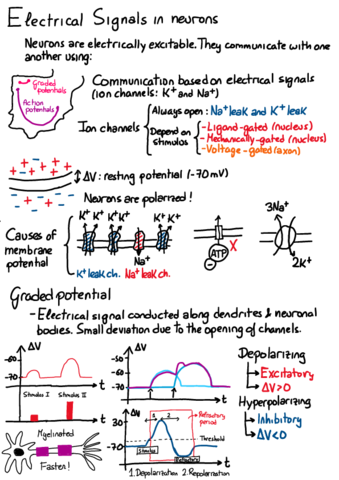 Electrical Signals in neurons
Neurons are electrically excitable. They communicate with one
another using:
Graded
potentials
Action
potentials
Communication based on electrical signals
(ion channels: K⁺ and Na⁺)
Ion channels
Always open: Na⁺leak and K⁺leak
Depend on
stimulus
-Ligand-gated (nucleus)
-Mechanically-gated (nucleus)
-Voltage-gated (axon)
ΔV: resting potential (-70mV)
Neurons are polarized!
Causes of
membrane
potential
K⁺ K⁺ K⁺K⁺ K⁺ K⁺
Na⁺
K⁺leak ch. Na⁺leak ch.
ATP
X
3Na⁺
2K⁺
Graded potential
-Electrical signal conducted along dendrites & neuronal
bodies. Small deviation due to the opening of channels.
ΔV
-60
-70
t
Stimulus I
Stimulus II
t
ΔV
-50
-60
-70
t
Depolarizing
Excitatory
ΔV>0
Hyperpolarizing
Inhibitory
ΔV<0
Myelinated
Faster!
ΔV
30
-70
1
2
Refractory
period
Threshold
Stimulus
Refractory
t
1.Depolarization 2.Repolarization